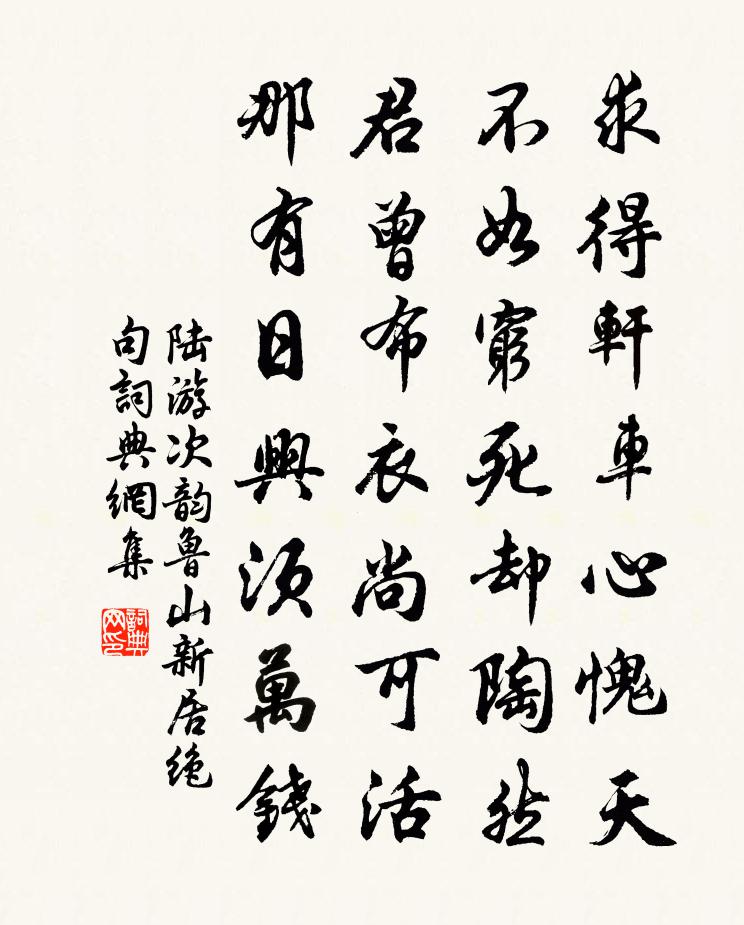 求得軒車心愧天
不如窮死却陶然
君曾布衣尚可活
那有日興須萬錢
陆游次韵魯山新居绝
句詞典網集
詞典网印